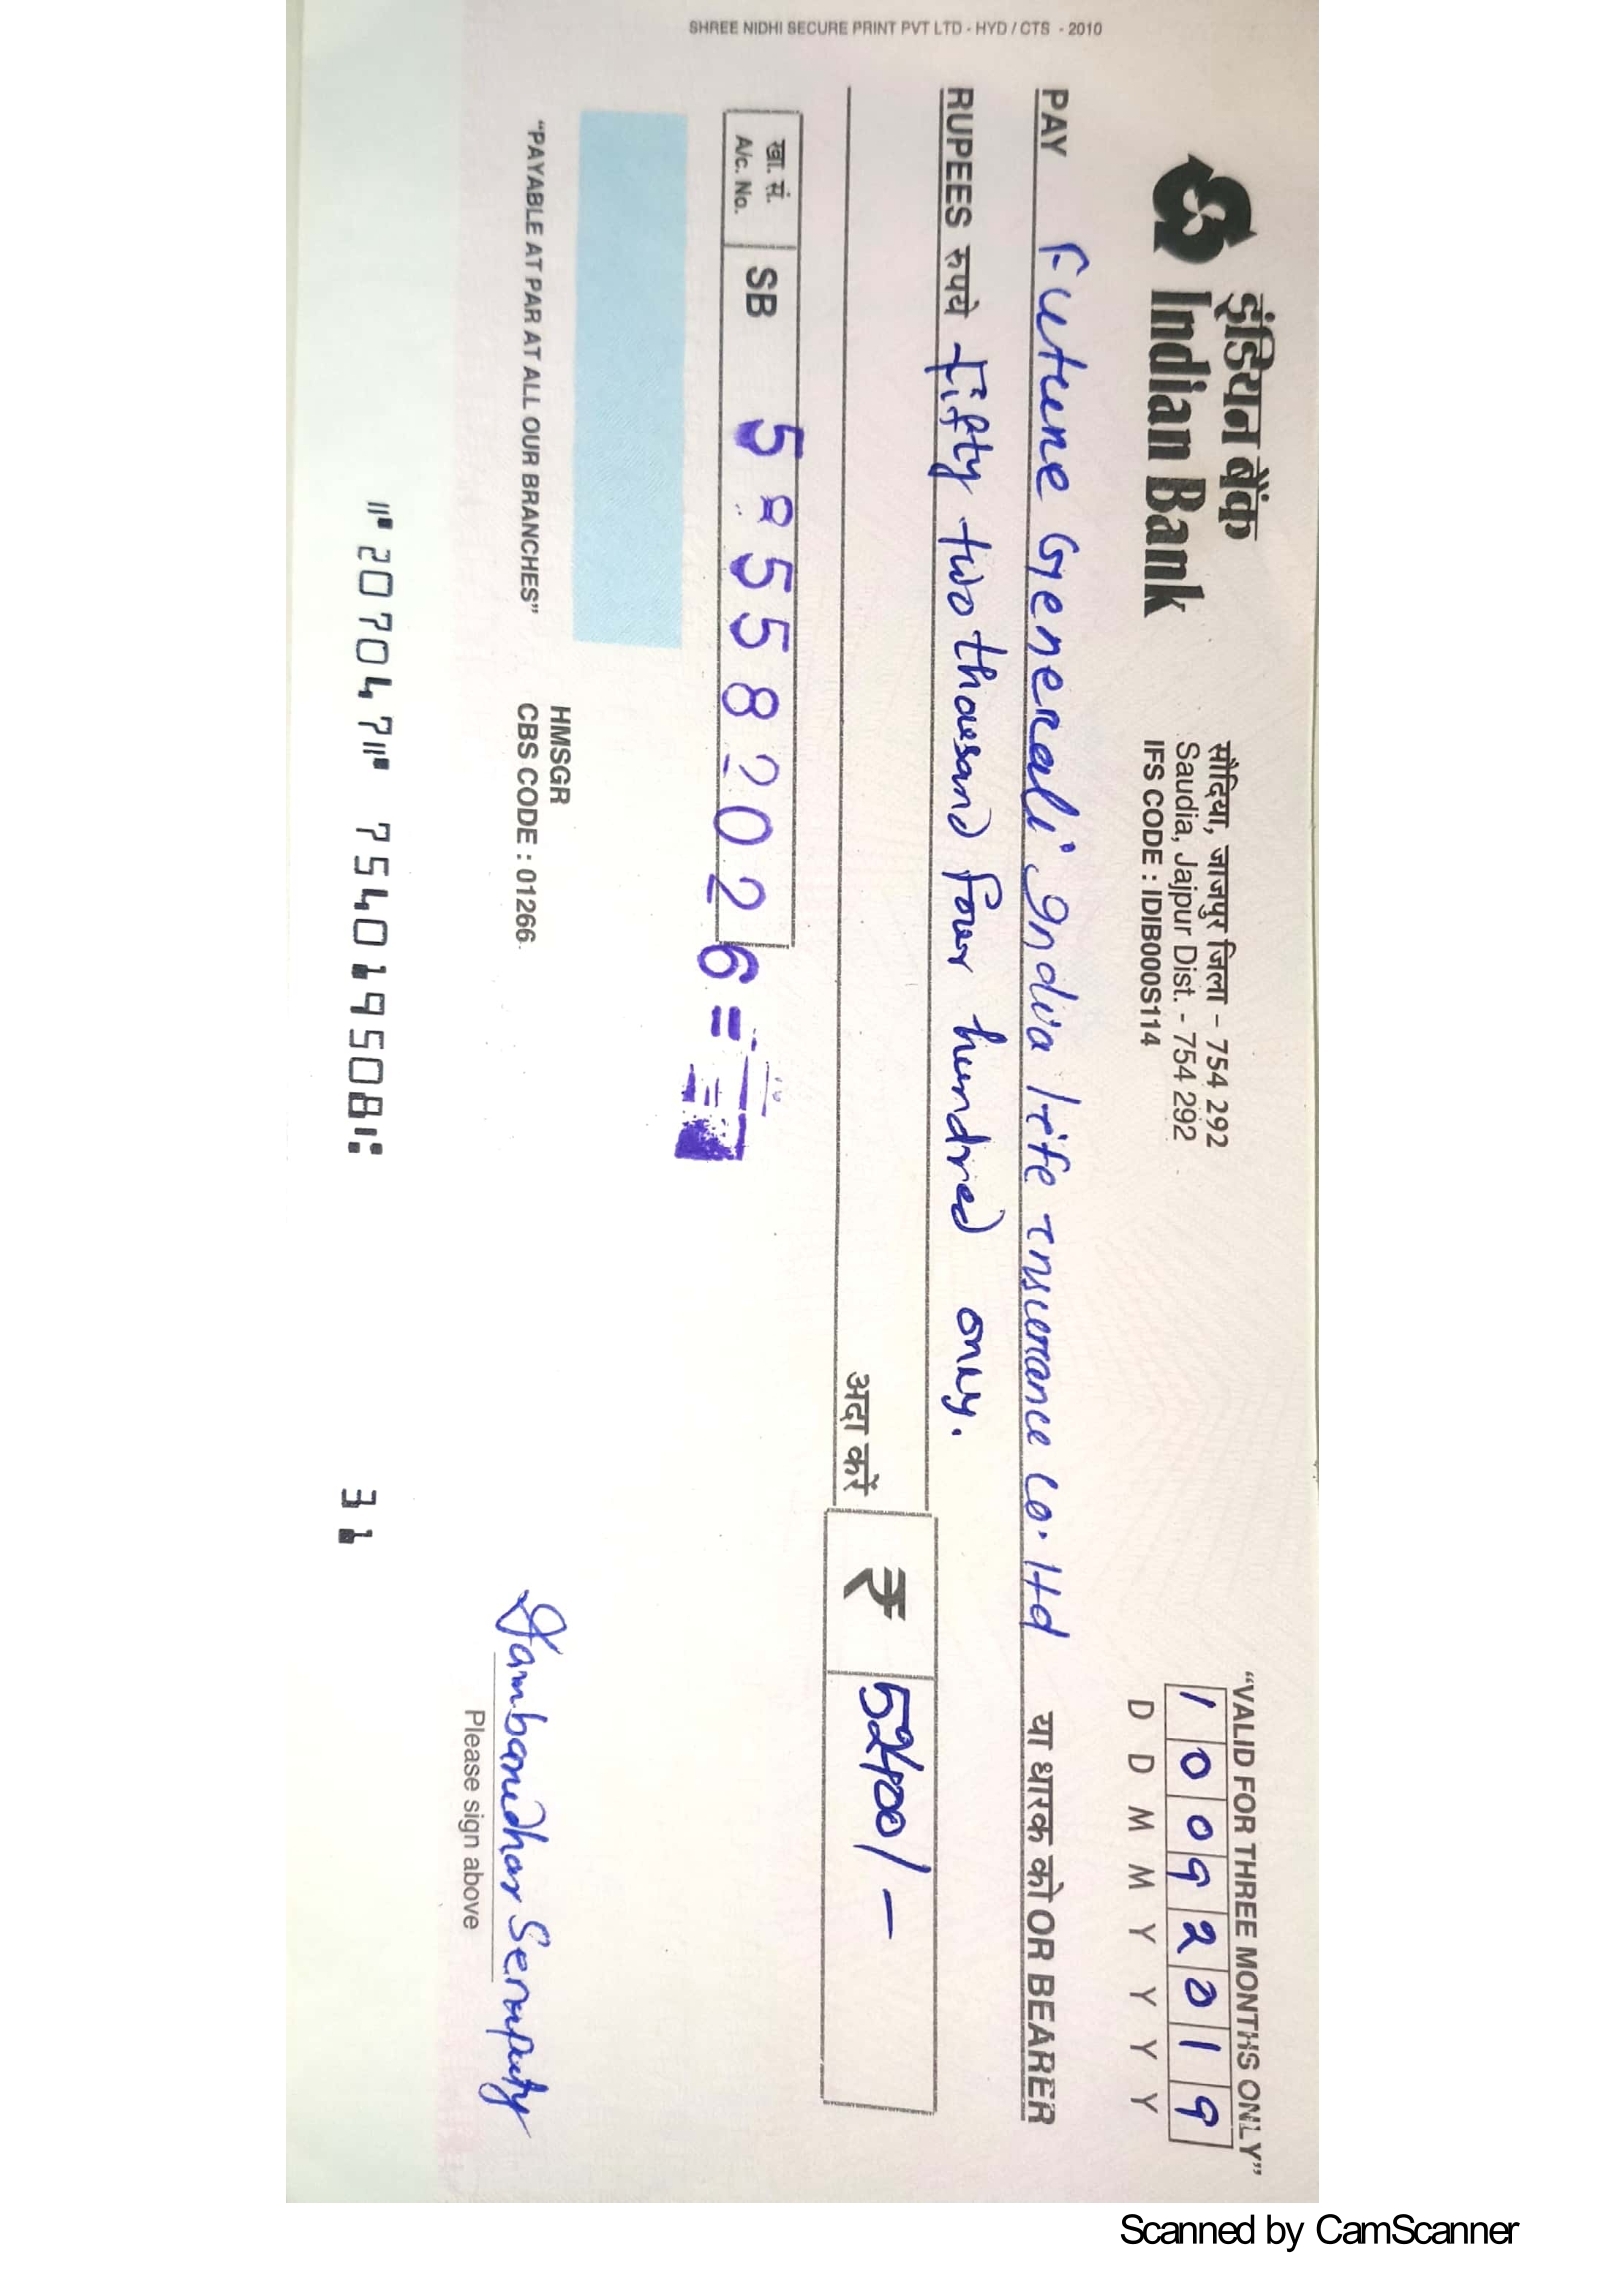 SHREE NIDHI SECURE PRINT PVT LTD - HYD / CTS - 2010
"VALID FOR THREE MONTHS ONLY"
इंडियन बैंक
Indian Bank
सौदिया, जाजपुर जिला - 754 292
Saudia, Jajpur Dist. - 754 292
IFS CODE : IDIB000S114
1 0 0 9 2 0 1 9
D D M M Y Y Y Y
PAY Future Generali India life insurance Co. ltd या धारक को OR BEARER
RUPEES रुपये Fifty two thousand four hundred only.
अदा करें ₹ 52400/-
खा. सं.
A/c. No. SB 5 5 5 8 2 0 2 6 =
HMSGR
"PAYABLE AT PAR AT ALL OUR BRANCHES" CBS CODE : 01266
Sambanidhar Seraphy
Please sign above
⑈207047⑈ 754019508⑆ 31
Scanned by CamScanner